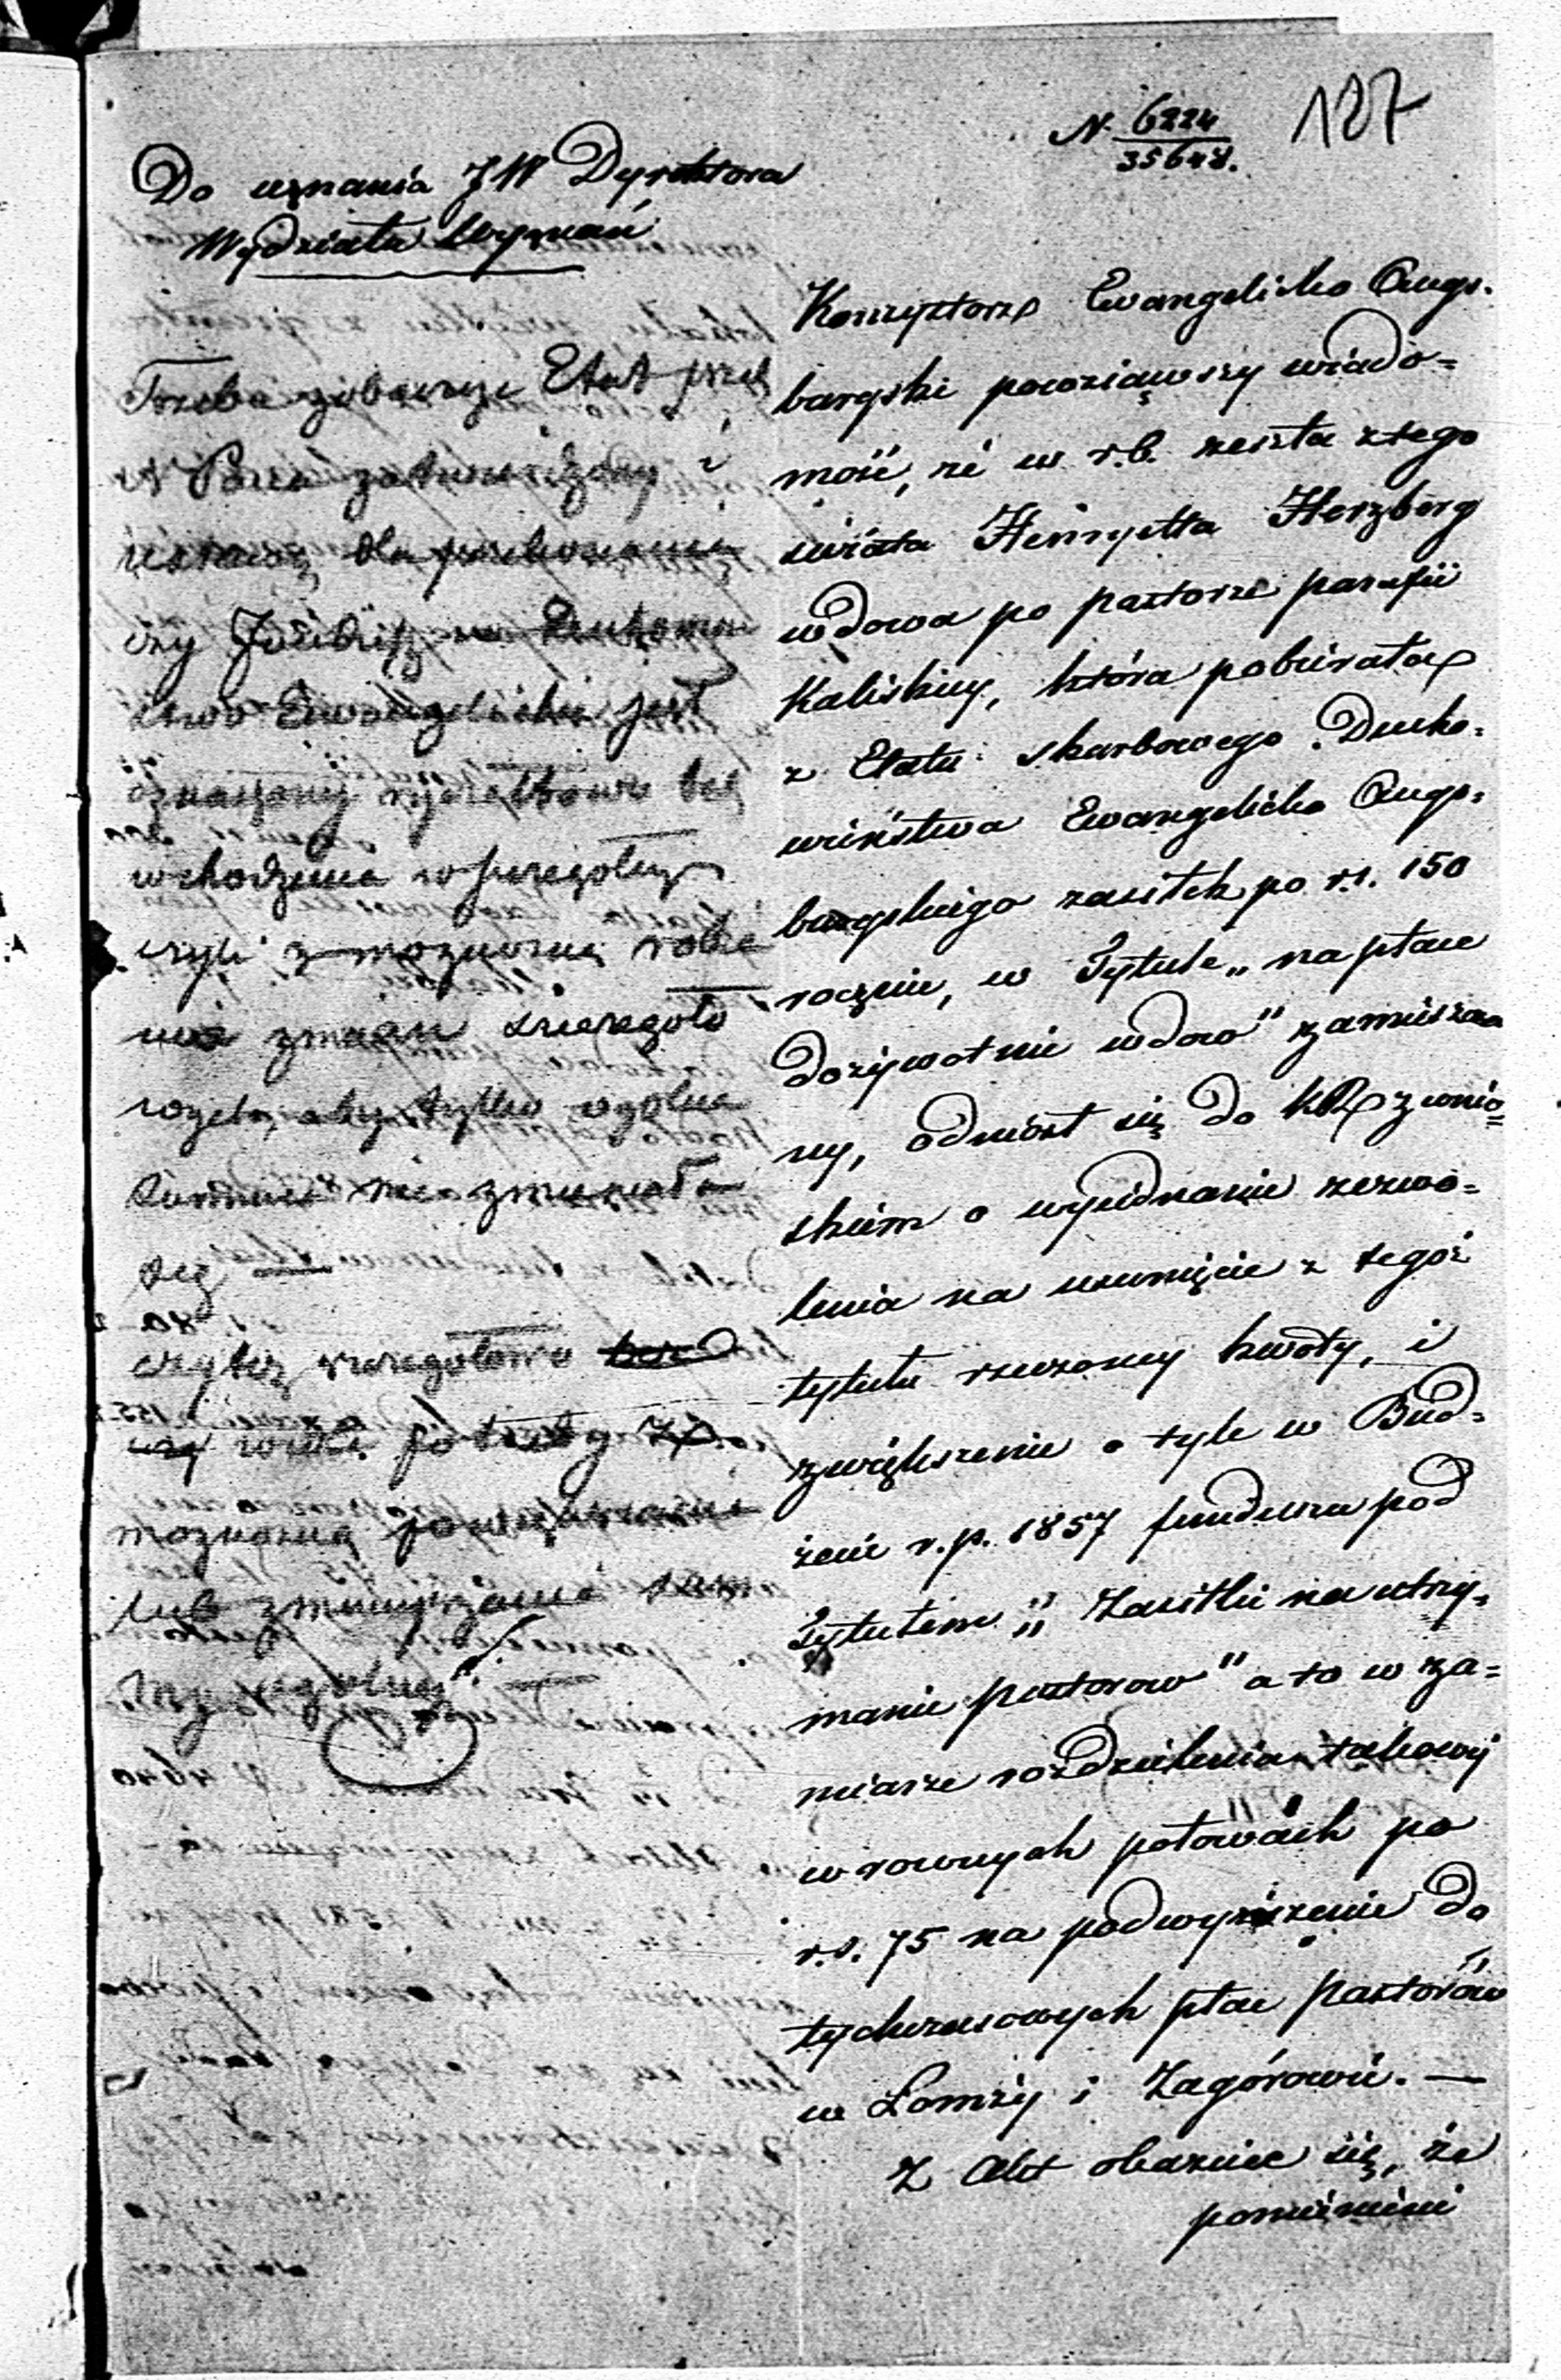 N. 6224
35648.
187
Do uznania JW Dyrektora
Wydziału Wyznań
Trzeba zobaczyć Etat przez
N Pana zatwierdzony i
dla przekonania
czy Fundusz na Duchowień
stwo Ewangelickie jest
oznaczony ryczałtowo bez
wchodzenia w szczegóły
czyli z możnością robie
nia zmian szczegóło
wych, aby tylko ogólna
summa nie zmieniała
się
czy też szczegółowo
możności powiększania
lub zmniejszania sum
my ogólnej.
Konsystorz Ewangelicko Augs-
burgski powziąwszy wiado-
mość, że w r.b. zeszła z tego
świata Henryetta Herzberg
wdowa po pastorze parafii
Kaliskiey, która pobierała
z Etatu skarbowego Ducho-
wieństwa Ewangelicko Augs-
burgskiego zasiłek po r.s. 150
rocznie, w Tytule „na płace
dożywotnie wdów" zamieszczo
ny, odniósł się do KR z wnio-
skiem o wyiednanie zezwo-
lenia na usunięcie z tegoż
tytułu rzeczoney kwoty, i
zwiększenie o tyle w Bud-
żecie r.p. 1857 funduszu pod
Tytułem „Zasiłki na utrzy-
manie pastorow" a to w za-
miarze rozdzielenia takowey
w rownych połowach po
r.s. 75 na podwyższenie do
tychczasowych płac pastorów
w Łomży i Zagórowie. —
Z Akt okazuie się, że
pomienieni